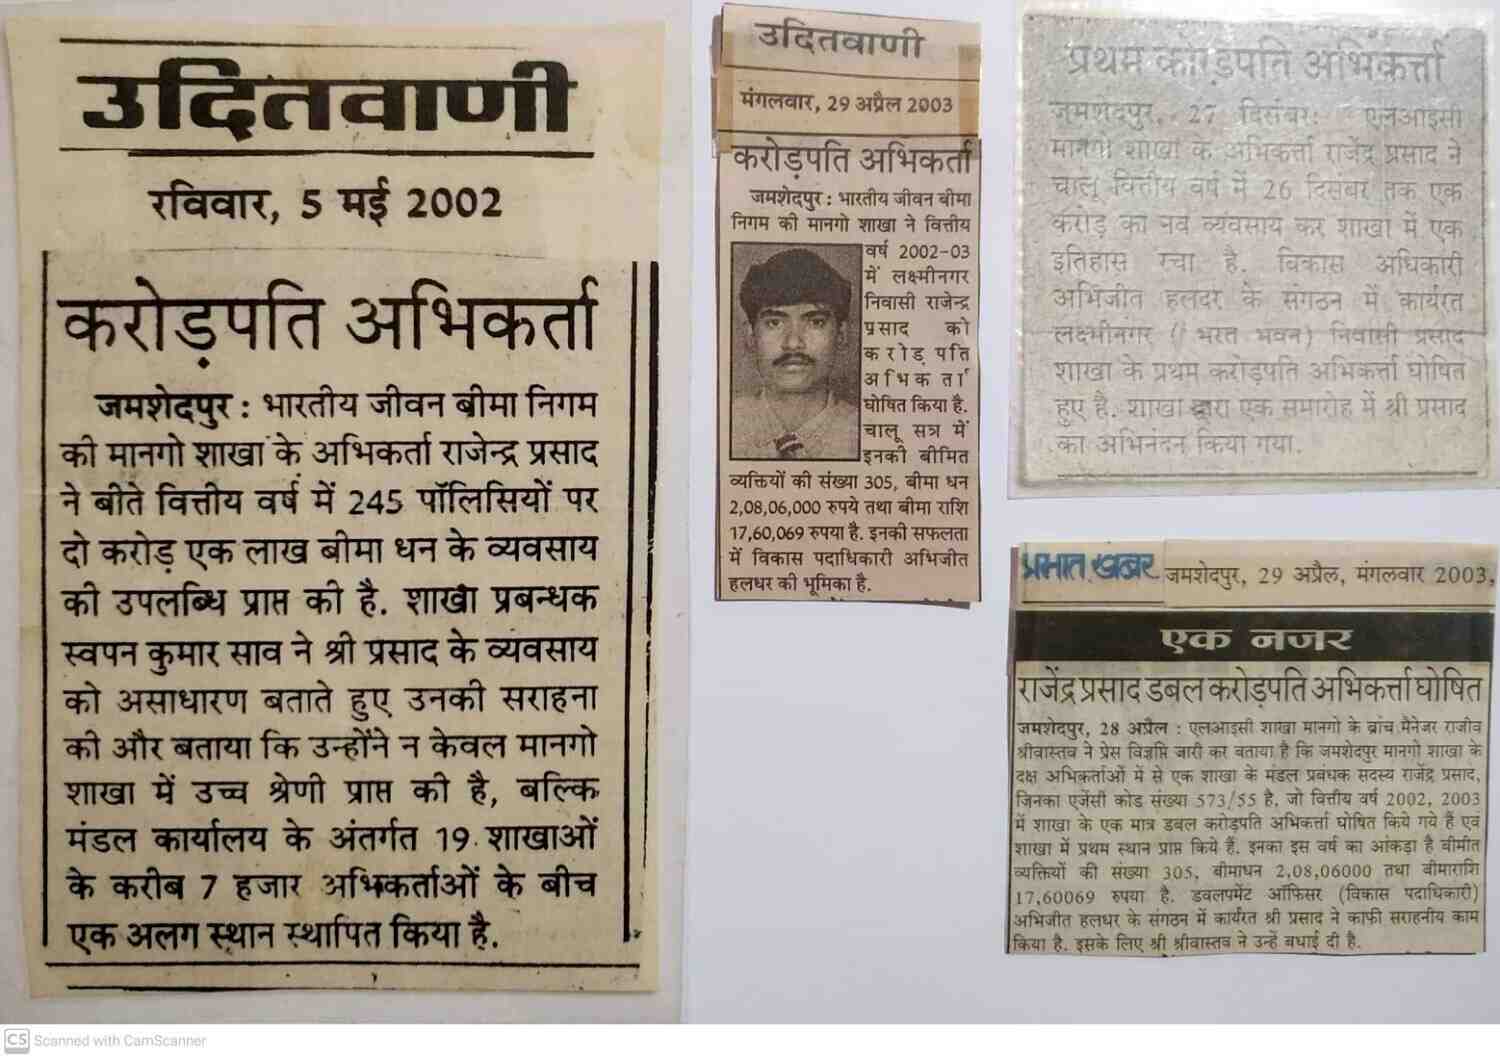 उदितवाणी
रविवार, 5 मई 2002
करोड़पति अभिकर्ता
जमशेदपुर : भारतीय जीवन बीमा निगम
की मानगो शाखा के अभिकर्ता राजेन्द्र प्रसाद
ने बीते वित्तीय वर्ष में 245 पॉलिसियों पर
दो करोड़ एक लाख बीमा धन के व्यवसाय
की उपलब्धि प्राप्त की है. शाखा प्रबन्धक
स्वपन कुमार साव ने श्री प्रसाद के व्यवसाय
को असाधारण बताते हुए उनकी सराहना
की और बताया कि उन्होंने न केवल मानगो
शाखा में उच्च श्रेणी प्राप्त की है, बल्कि
मंडल कार्यालय के अंतर्गत 19 शाखाओं
के करीब 7 हजार अभिकर्ताओं के बीच
एक अलग स्थान स्थापित किया है.
उदितवाणी
मंगलवार, 29 अप्रैल 2003
करोड़पति अभिकर्ता
जमशेदपुर : भारतीय जीवन बीमा
निगम की मानगो शाखा ने वित्तीय
वर्ष 2002-03
में लक्ष्मीनगर
निवासी राजेन्द्र
प्रसाद को
करोड़ पति
अभिकर्ता
घोषित किया है.
चालू सत्र में
इनकी बीमित
व्यक्तियों की संख्या 305, बीमा धन
2,08,06,000 रुपये तथा बीमा राशि
17,60,069 रुपया है. इनकी सफलता
में विकास पदाधिकारी अभिजीत
हलधर की भूमिका है.
प्रथम करोड़पति अभिकर्त्ता
जमशेदपुर, 27 दिसंबर: एलआइसी
मानगो शाखा के अभिकर्त्ता राजेंद्र प्रसाद ने
चालू वित्तीय वर्ष में 26 दिसंबर तक एक
करोड़ का नव व्यवसाय कर शाखा में एक
इतिहास रचा है. विकास अधिकारी
अभिजीत हलदर के संगठन में कार्यरत
लक्ष्मीनगर ( भरत भवन) निवासी प्रसाद
शाखा के प्रथम करोड़पति अभिकर्त्ता घोषित
हुए है. शाखा द्वारा एक समारोह में श्री प्रसाद
का अभिनंदन किया गया.
प्रभात खबर जमशेदपुर, 29 अप्रैल, मंगलवार 2003,
एक नजर
राजेंद्र प्रसाद डबल करोड़पति अभिकर्त्ता घोषित
जमशेदपुर, 28 अप्रैल : एलआइसी शाखा मानगो के ब्रांच मैनेजर राजीव
श्रीवास्तव ने प्रेस विज्ञप्ति जारी कर बताया है कि जमशेदपुर मानगो शाखा के
दक्ष अभिकर्ताओं में से एक शाखा के मंडल प्रबंधक सदस्य राजेंद्र प्रसाद,
जिनका एजेंसी कोड संख्या 573/55 है, जो वित्तीय वर्ष 2002, 2003
में शाखा के एक मात्र डबल करोड़पति अभिकर्त्ता घोषित किये गये हैं एवं
शाखा में प्रथम स्थान प्राप्त किये हैं. इनका इस वर्ष का आंकड़ा है बीमीत
व्यक्तियों की संख्या 305, बीमाधन 2,08,06000 तथा बीमाराशि
17,60069 रुपया है. डवलपमेंट ऑफिसर (विकास पदाधिकारी)
अभिजीत हलधर के संगठन में कार्यरत श्री प्रसाद ने काफी सराहनीय काम
किया है. इसके लिए श्री श्रीवास्तव ने उन्हें बधाई दी है.
CS Scanned with CamScanner